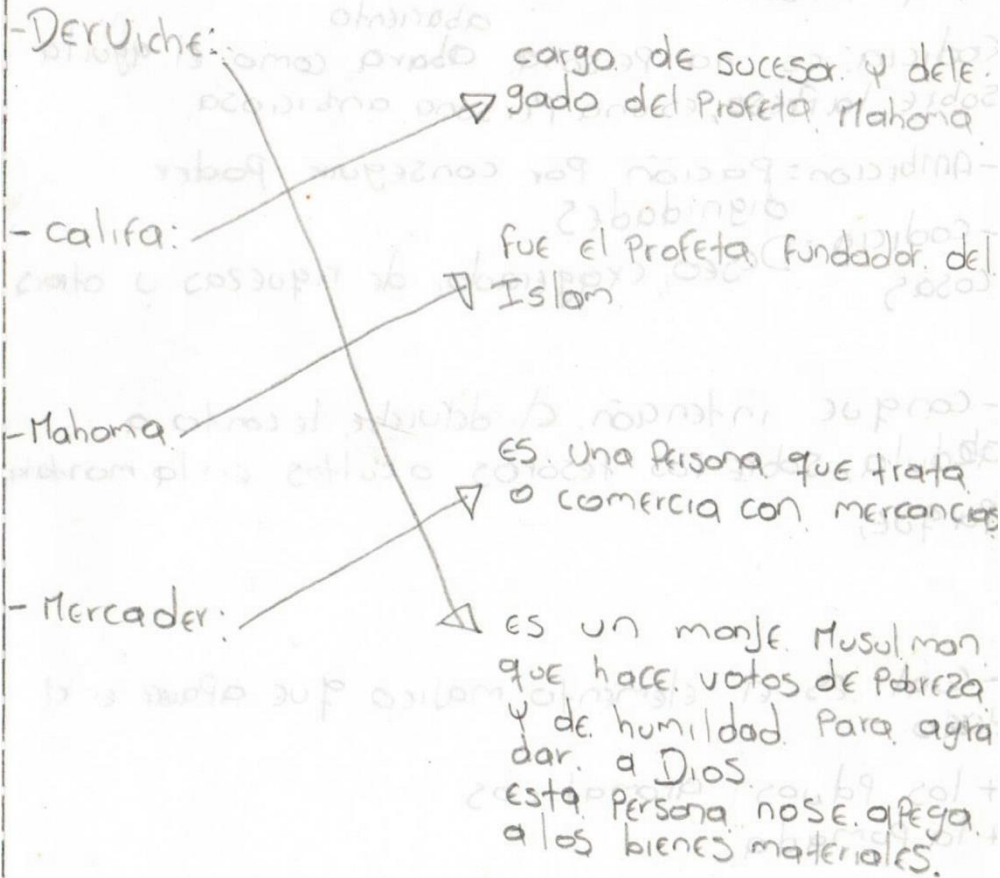 -Derviche:
cargo de sucesor y dele-
gado del Profeta Mahoma
- califa:
fue el Profeta fundador del
Islam
-Mahoma:
Es una Persona que trata
o comercia con mercancias
- Mercader:
es un monje Musulman
que hace votos de Pobreza
y de humildad Para agra
dar a Dios.
Esta Persona nose apega
a los bienes materiales.